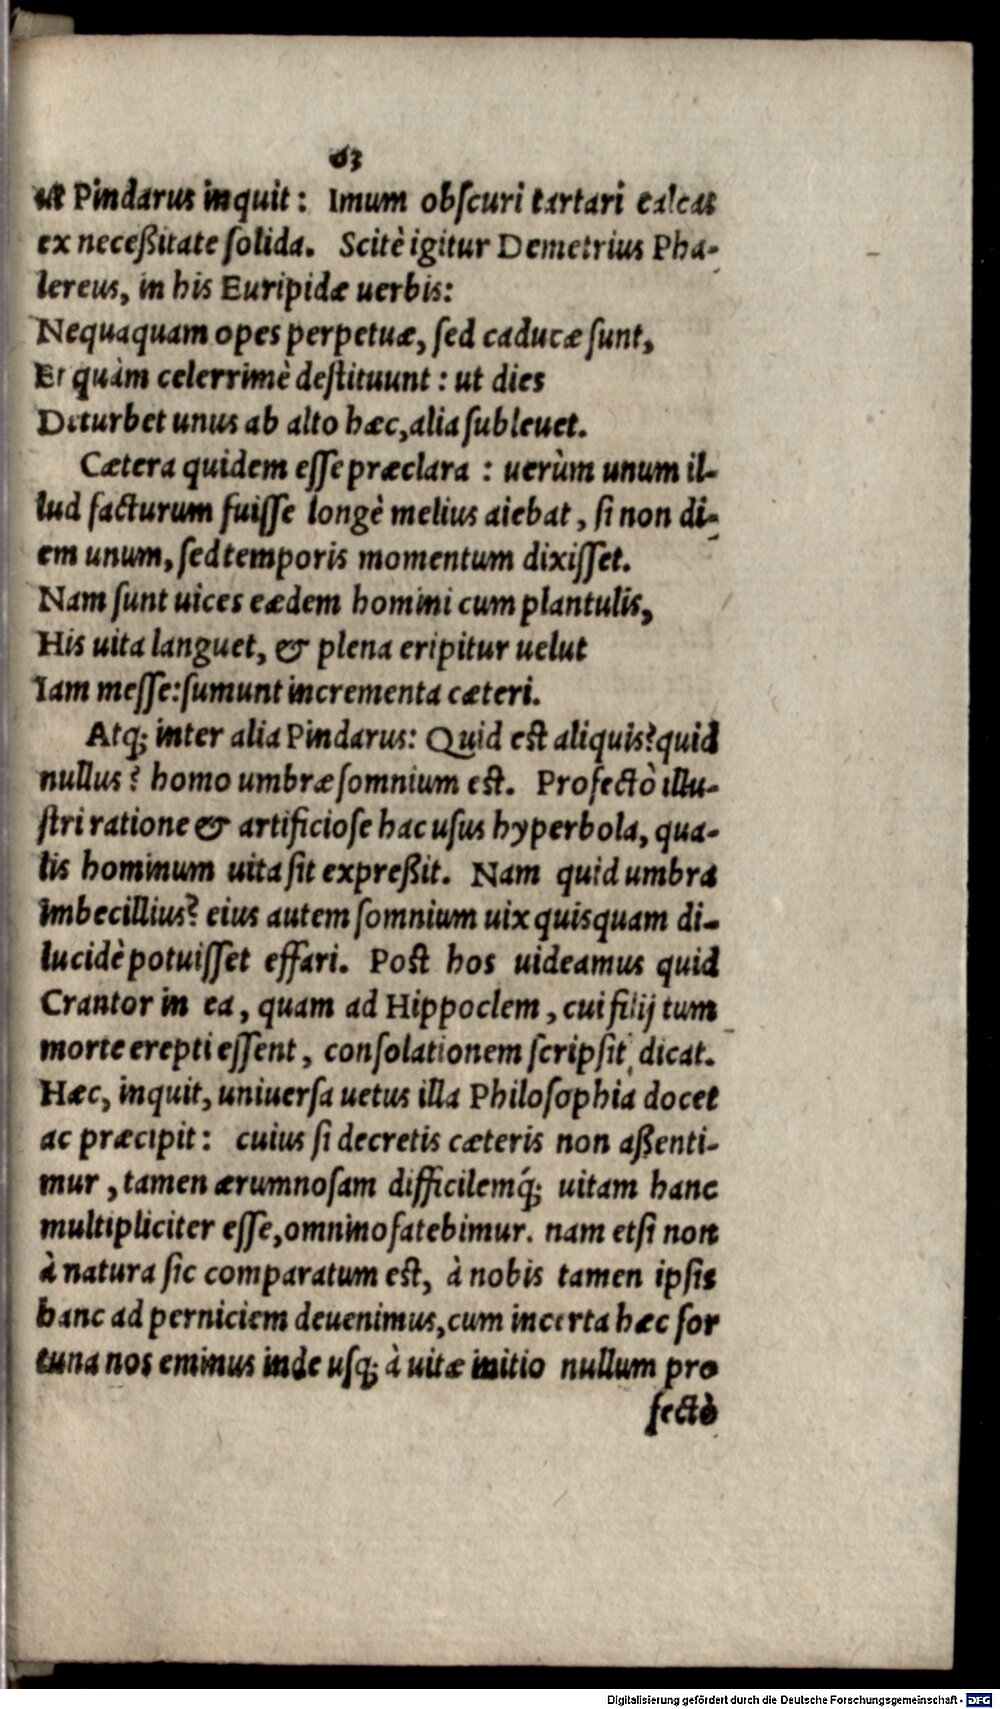 63
ut Pindarus inquit: Imum obſcuri tartari calcat
ex neceßitate ſolida. Scitè igitur Demetrius Pha-
lereus, in his Euripidæ uerbis:
Nequaquam opes perpetuæ, ſed caducæ ſunt,
Et quàm celerrimè deſtituunt: ut dies
Deturbet unus ab alto hæc, alia ſubleuet.
Cætera quidem eſſe præclara: uerùm unum il-
lud facturum fuiſſe longè melius aiebat, ſi non di-
em unum, ſed temporis momentum dixiſſet.
Nam ſunt uices eædem homini cum plantulis,
His uita languet, & plena eripitur uelut
Iam meſſe: ſumunt incrementa cæteri.
Atq; inter alia Pindarus: Quid eſt aliquis? quid
nullus? homo umbræ ſomnium eſt. Profectò illu-
ſtri ratione & artificioſe hac uſus hyperbola, qua-
lis hominum uita ſit expreßit. Nam quid umbra
imbecillius? eius autem ſomnium uix quisquam di-
lucidè potuiſſet effari. Poſt hos uideamus quid
Crantor in ea, quam ad Hippoclem, cui filij tum
morte erepti eſſent, conſolationem ſcripſit, dicat.
Hæc, inquit, uniuerſa uetus illa Philoſophia docet
ac præcipit: cuius ſi decretis cæteris non aßenti-
mur, tamen ærumnoſam difficilemq́; uitam hanc
multipliciter eſſe, omnino fatebimur. nam etſi non
à natura ſic comparatum eſt, à nobis tamen ipſis
hanc ad perniciem deuenimus, cum incerta hæc for
tuna nos eminus inde uſq; à uitæ initio nullum pro
fectò
Digitalisierung gefördert durch die Deutsche Forschungsgemeinschaft - DFG